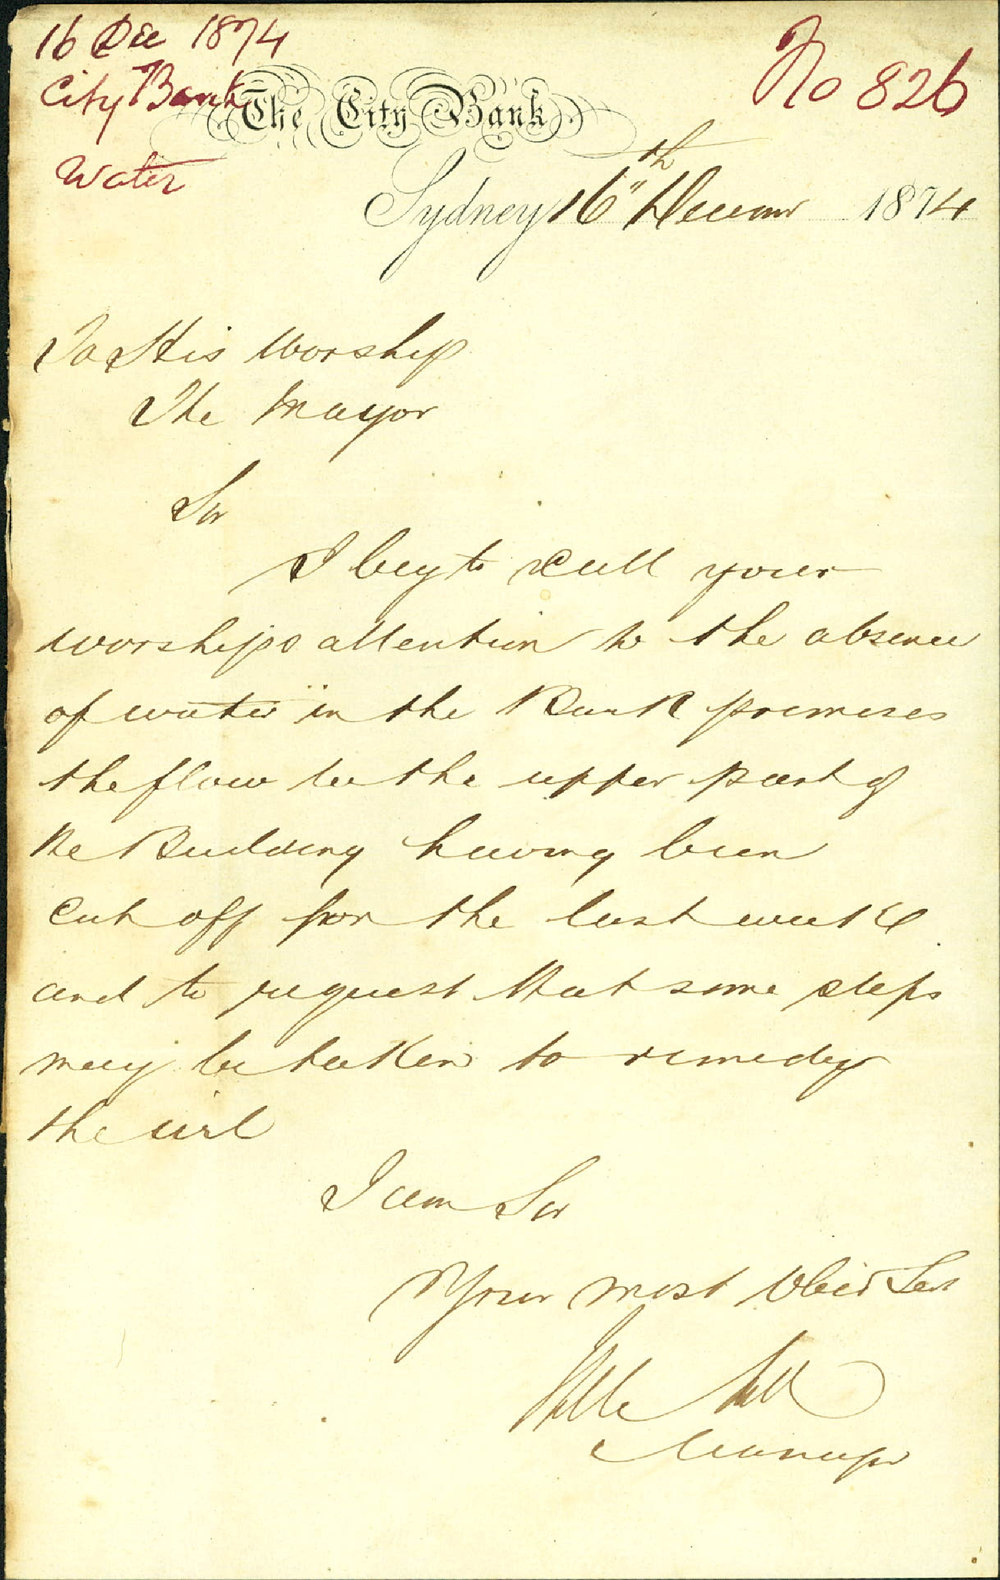 16 Dec 1874
City Bank
Water
No 826
The City Bank
Sydney 16th December 1874
To His Worship
The Mayor
Sir
I beg to call your
worships attention to the absence
of water in the Bank premises
the flow to the upper part of
the Building having been
cut off for the last week
and to request that some steps
may be taken to remedy
the evil
I am Sir
Your most Obed Sert
Manager